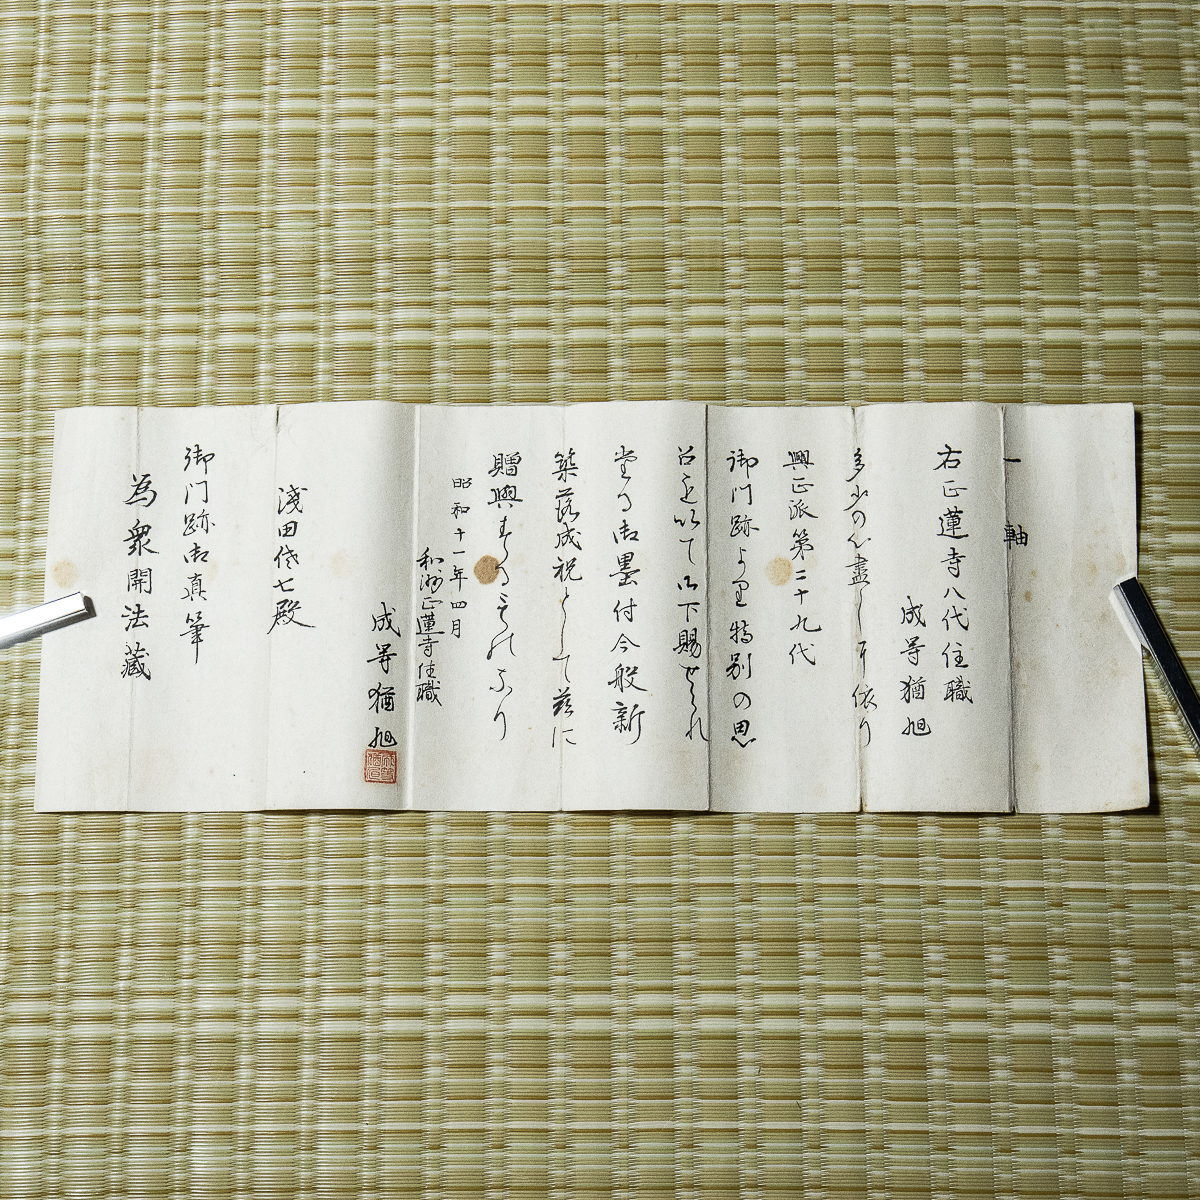 一軸
右正蓮寺八代住職
成等猶旭
多少の心盡し 依り
興正派第二十九代
御門跡より特別の思
召を以て御下賜せられ
る御墨付今般新
築落成祝として茲に
贈與するものなり
昭和十一年四月
和州正蓮寺住職
成等猶旭
淺田 七殿
御門跡御真筆
為衆開法蔵